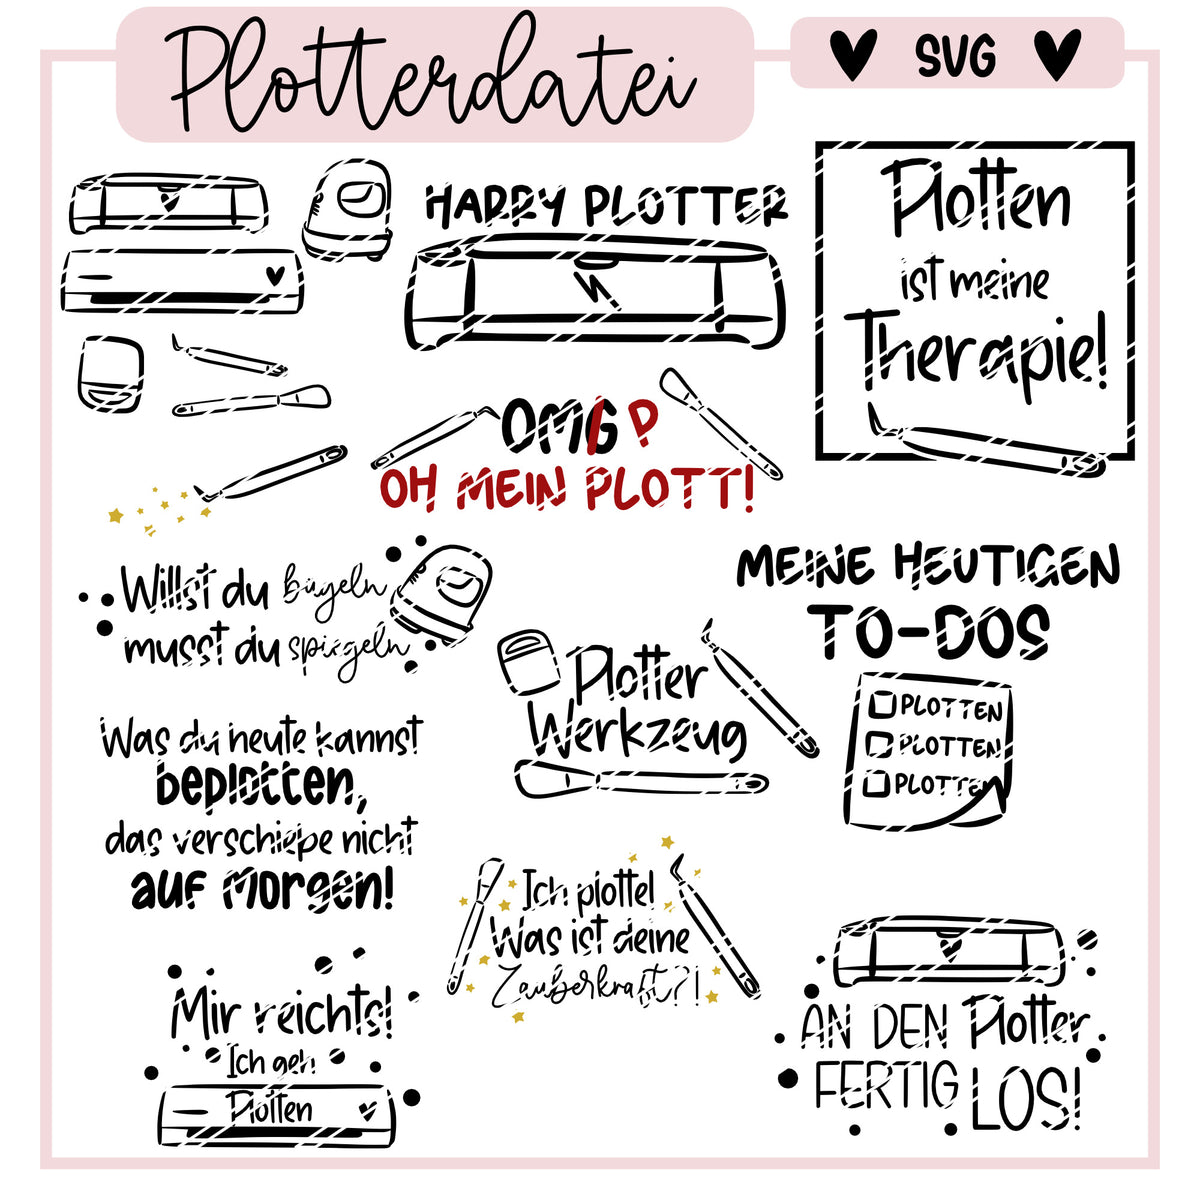 Plotterdatei
SVG
HAPPY PLOTTER
Plotten
ist meine
Therapie!
OMG?
OH MEIN PLOTT!
Willst du bügeln
musst du spiegeln
MEINE HEUTIGEN
TO-DOS
PLOTTEN
PLOTTEN
PLOTTEN
Plotter
Werkzeug
Was du heute kannst
beplotten,
das verschiebe nicht
auf morgen!
Ich plotte!
Was ist deine
Zauberkraft?!
Mir reichts!
Ich geh
Plotten
AN DEN Plotter
FERTIG LOS!